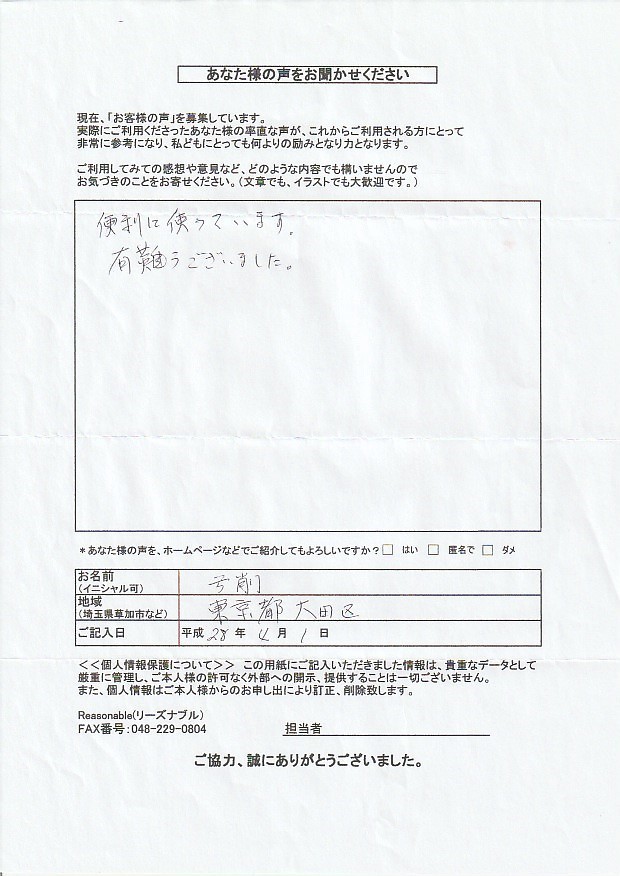 あなた様の声をお聞かせください
現在、「お客様の声」を募集しています。
実際にご利用くださったあなた様の率直な声が、これからご利用される方にとって
非常に参考になり、私どもにとっても何よりの励みとなり力となります。
ご利用してみての感想や意見など、どのような内容でも構いませんので
お気づきのことをお寄せください。(文章でも、イラストでも大歓迎です。)
便利に使っています。
有難うございました。
*あなた様の声を、ホームページなどでご紹介してもよろしいですか? □ はい □ 匿名で □ ダメ
お名前
(イニシャル可)
弓削
地域
(埼玉県草加市など)
東京都 大田区
ご記入日 平成 28 年 4 月 1 日
<<個人情報保護について>> この用紙にご記入いただきました情報は、貴重なデータとして
厳重に管理し、ご本人様の許可なく外部への開示、提供することは一切ございません。
また、個人情報はご本人様からのお申し出により訂正、削除致します。
Reasonable(リーズナブル)
FAX番号:048-229-0804
担当者
ご協力、誠にありがとうございました。